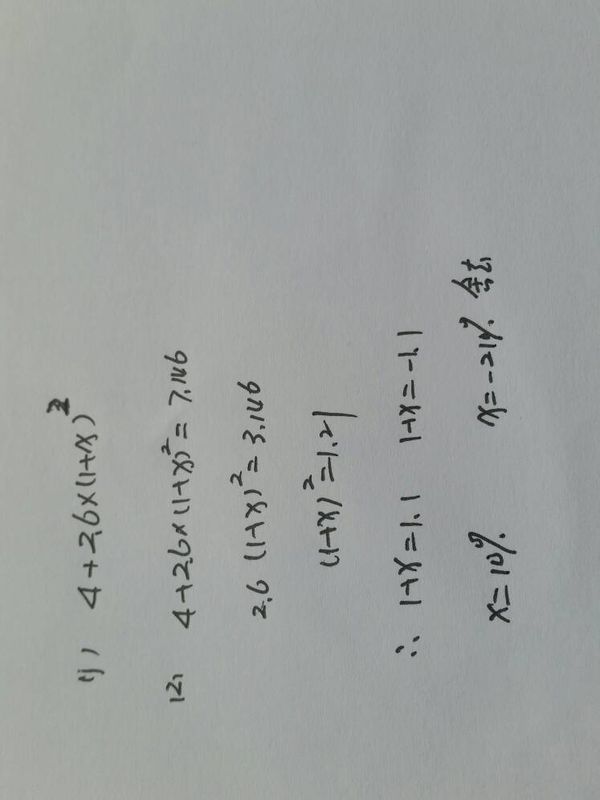 (1) 4+2.6×(1+x)²
(2) 4+2.6×(1+x)²=7.146
2.6(1+x)²=3.146
(1+x)²=1.21
∴ 1+x=1.1 1+x=-1.1
x=10% x=-21% 舍去